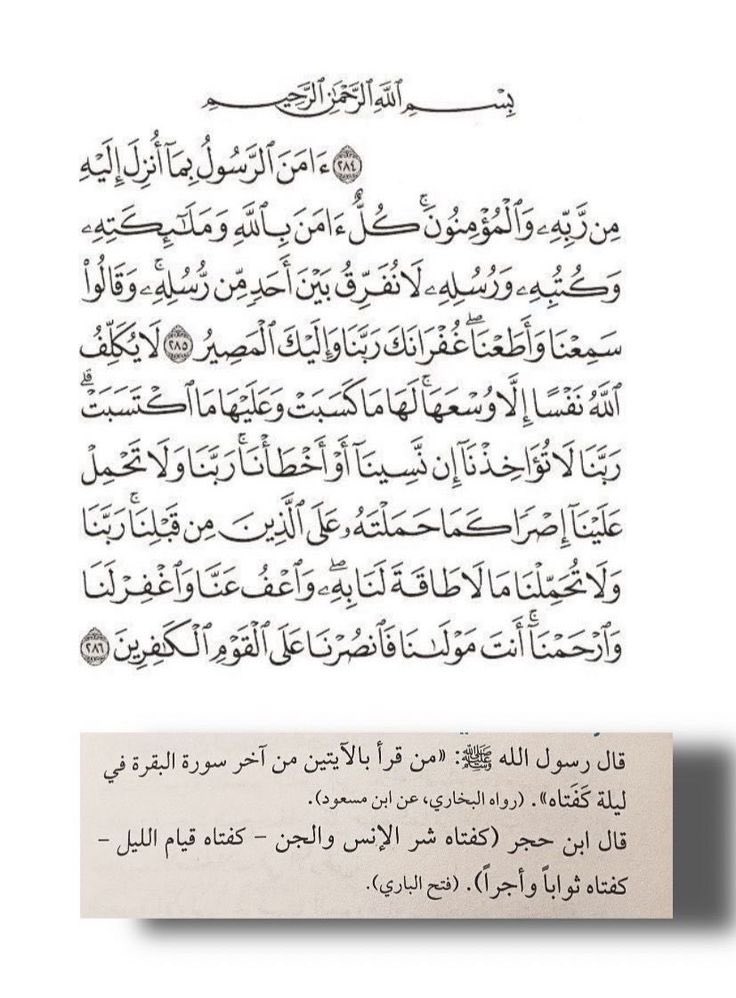 بِسْمِ ٱللَّهِ ٱلرَّحْمَٰنِ ٱلرَّحِيمِ
٢٨٤ ءَامَنَ ٱلرَّسُولُ بِمَآ أُنزِلَ إِلَيْهِ
مِن رَّبِّهِۦ وَٱلْمُؤْمِنُونَۚ كُلٌّ ءَامَنَ بِٱللَّهِ وَمَلَٰٓئِكَتِهِۦ
وَكُتُبِهِۦ وَرُسُلِهِۦ لَا نُفَرِّقُ بَيْنَ أَحَدٍ مِّن رُّسُلِهِۦۚ وَقَالُوا۟
سَمِعْنَا وَأَطَعْنَاۖ غُفْرَانَكَ رَبَّنَا وَإِلَيْكَ ٱلْمَصِيرُ ٢٨٥ لَا يُكَلِّفُ
ٱللَّهُ نَفْسًا إِلَّا وُسْعَهَاۚ لَهَا مَا كَسَبَتْ وَعَلَيْهَا مَا ٱكْتَسَبَتْۗ
رَبَّنَا لَا تُؤَاخِذْنَآ إِن نَّسِينَآ أَوْ أَخْطَأْنَاۚ رَبَّنَا وَلَا تَحْمِلْ
عَلَيْنَآ إِصْرًا كَمَا حَمَلْتَهُۥ عَلَى ٱلَّذِينَ مِن قَبْلِنَاۚ رَبَّنَا
وَلَا تُحَمِّلْنَا مَا لَا طَاقَةَ لَنَا بِهِۦۖ وَٱعْفُ عَنَّا وَٱغْفِرْ لَنَا
وَٱرْحَمْنَآۚ أَنتَ مَوْلَىٰنَا فَٱنصُرْنَا عَلَى ٱلْقَوْمِ ٱلْكَٰفِرِينَ ٢٨٦
قال رسول الله ﷺ: «من قرأ بالآيتين من آخر سورة البقرة في
ليلة كَفَتاه». (رواه البخاري، عن ابن مسعود).
قال ابن حجر (كفتاه شر الإنس والجن – كفتاه قيام الليل –
كفتاه ثواباً وأجراً). (فتح الباري).